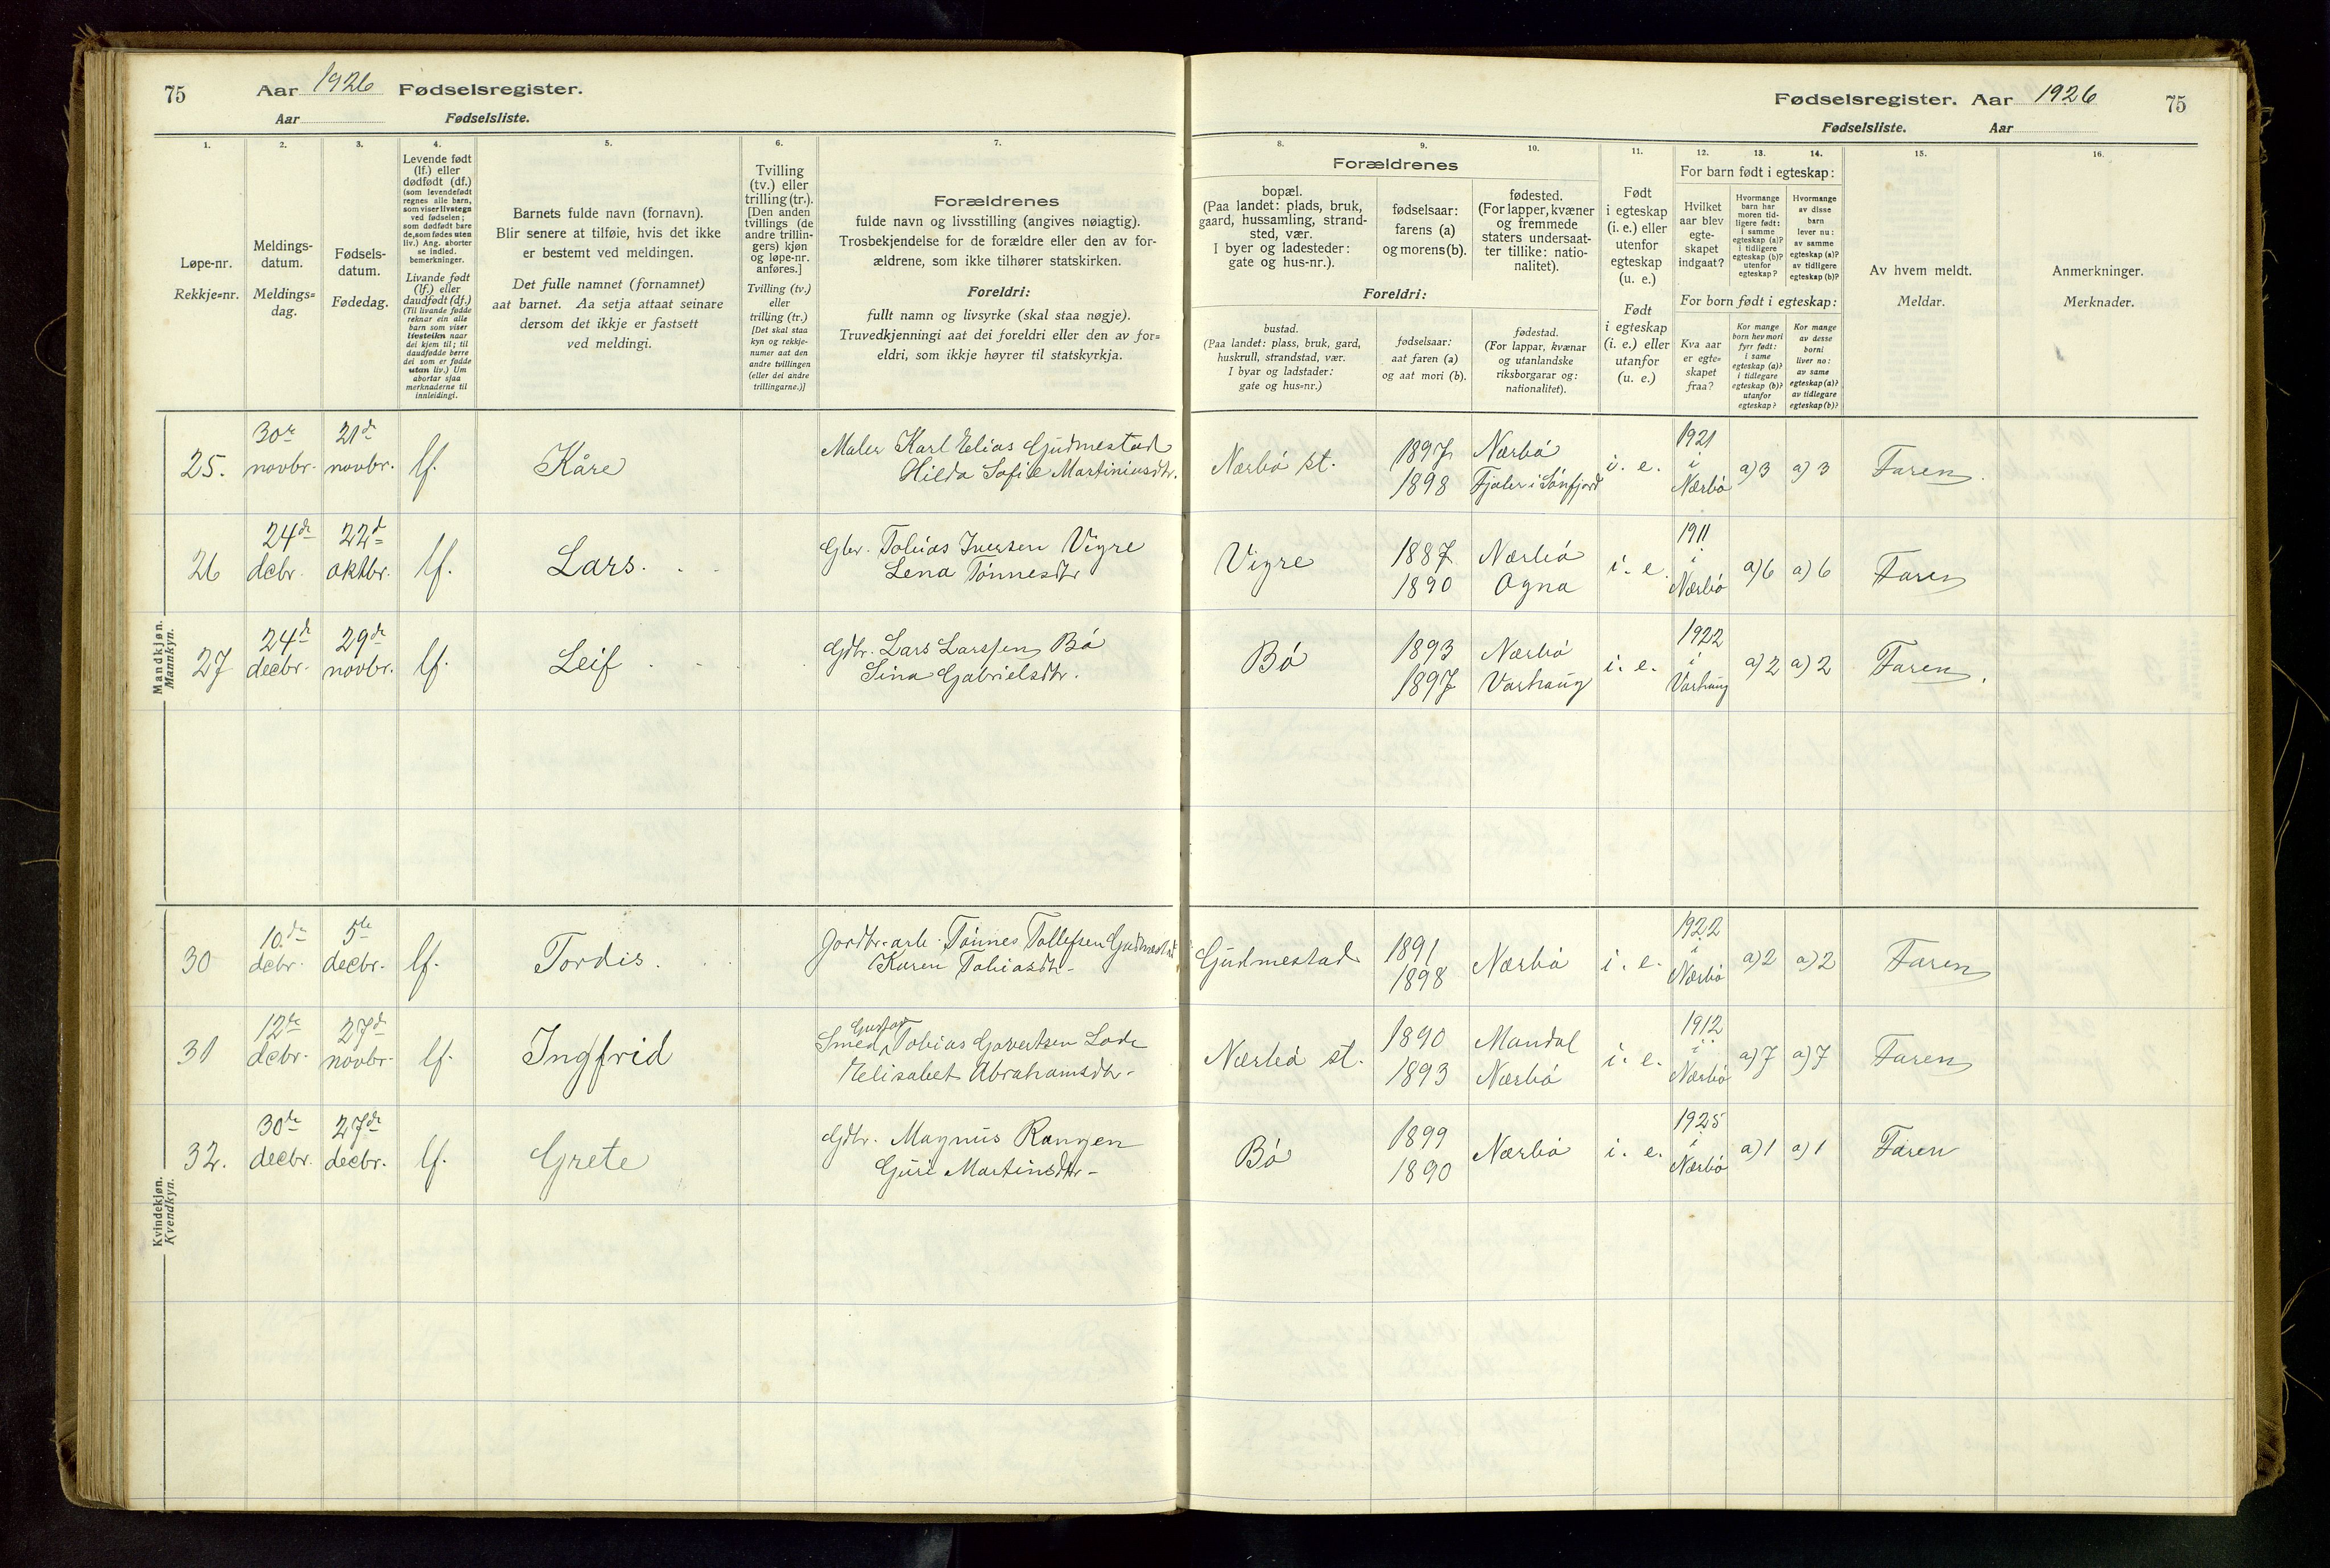 75 Aar 1926 Fødselsregister.
Aar Fødselsliste.
Fødselsregister. Aar 1926 75
Fødselsliste. Aar
1. 2. 3. 4. 5. 6. 7.
Løpe-nr.
Rekkje=nr.
Meldings-
datum.
Meldings=
dag.
Fødsels-
datum.
Fødedag.
Levende født
(lf.) eller
dødfødt (df.)
(som levendefødt
regnes alle barn,
som viser livstegn
ved fødselen;
som dødfødt bare
de, som fødes uten
liv.) Ang. aborter
se indled.
bemerkninger.
Livande født
(lf.) eller
daudfødt (df.)
(Til livande fødde
reknar ein alle
born som viser
livsteikn naar
dei kjem til; til
daudfødde berre
dei som er fødde
utan liv.) Um
abortar sjaa
merknaderne til
innleidingi.
Barnets fulde navn (fornavn).
Blir senere at tilføie, hvis det ikke
er bestemt ved meldingen.
Det fulle namnet (fornamnet)
aat barnet. Aa setja attaat seinare
dersom det ikkje er fastsett
ved meldingi.
Tvilling
(tv.) eller
trilling (tr.).
[Den anden
tvillings (de
andre trillin-
gers) kjøn
og løpe-nr.
anføres.]
Tvilling (tv.)
eller
trilling (tr.)
[Det skal staa
kyn og rekkje-
numer aat den
andre tvillingen
(eller dei andre
trillingarne.)]
Forældrenes
fulde navn og livsstilling (angives nøiagtig).
Trosbekjendelse for de forældre eller den av for-
ældrene, som ikke tilhører statskirken.
Foreldri:
fullt namn og livsyrke (skal staa nøgje).
Truvedkjenningi aat dei foreldri eller den av for=
eldri, som ikkje høyrer til statskyrkja.
8. 9. 10. 11. 12. 13. 14. 15. 16.
Forældrenes
bopæl.
(Paa landet: plads, bruk,
gaard, hussamling, strand-
sted, vær.
I byer og ladesteder:
gate og hus-nr.).
fødselsaar:
farens (a)
og morens (b).
fødested.
(For lapper, kvæner
og fremmede
staters undersaat-
ter tillike: natio-
nalitet).
Foreldri:
bustad.
(Paa landet: plass, bruk, gard,
huskrull, strandstad, vær.
I byar og ladstader:
gate og hus=nr.)
fødselsaar:
aat faren (a)
og aat mori (b).
fødestad.
(For lappar, kvænar
og utanlandske
riksborgarar og:
nationalitet).
Født
i egteskap
(i. e.) eller
utenfor
egteskap
(u. e.)
Født
i egteskap
(i. e.) eller
utanfor
(u. e.)
For barn født i egteskap:
Hvilket
aar blev
egte-
skapet
indgaat?
Hvormange
barn har
moren tid-
ligere født:
i samme
egteskap (a)?
i tidligere
egteskap (b)?
utenfor
egteskap?
Hvormange
av disse
barn
lever nu:
av samme
egteskap (a)?
av tidligere
egteskap (b)?
For born født i egteskap:
Kva aar
er egte-
skapet
fraa?
Kor mange
born hev mori
fyrr født:
i same
egteskap (a)?
i tidlegare
egteskap (b)?
utanfor
egteskap?
Kor mange
av desse
borni
liver no:
av same
egteskap (a)?
av tidlegare
egteskap (b)?
Av hvem meldt.
Meldar.
Anmerkninger.
Merknader.
Mandkjøn.
Mannkyn.
25. 30te novbr. 21de novbr. lf. Kåre
Maler Karl Elias Gudmestad
Hilda Sofie Martiniusdtr.
Nærbø st. 1897 Nærbø i. e. 1921 i Nærbø a) 3 a) 3 Faren
1898 Fjaler i Sønfjord
26 24de dcbr. 22d oktbr. lf. Lars.
Gbr. Tobias Iversen Vigre
Lena Tønnesdtr
Vigre 1887 Nærbø i. e. 1911 i Nærbø a) 6 a) 6 Faren
1890 Ogna
27 24de decbr. 29de novbr. lf. Leif
Gdbr. Lars Larssen Bø
Sina Gabrielsdtr.
Bø 1893 Nærbø i. e. 1922 i Varhaug a) 2 a) 2 Faren
1897 Varhaug
30 10de dcbr. 5te decbr. lf. Tordis.
Jordbr. arb. Tønnes Tollefsen Gudmestad
Karen Tobiasdtr.
Gudmestad 1891 Nærbø i. e. 1922 i Nærbø a) 2 a) 2 Faren
1898
31 12te dcbr. 27d novbr. lf. Ingfrid
Gustav
Smed Tobias Govertsen Lode
Elisabet Abrahamsdtr.
Nærbø st. 1890 Mandal i. e. 1912 i Nærbø a) 7 a) 7 Faren
1893 Nærbø
Kvindekjøn.
Kvendkyn.
32. 30te decbr. 27de decbr. lf. Grete
Gdbr. Magnus Rangen
Guri Martinsdtr.
Bø 1899 Nærbø i. e. 1925 i Nærbø a) 1 a) 1 Faren
1890